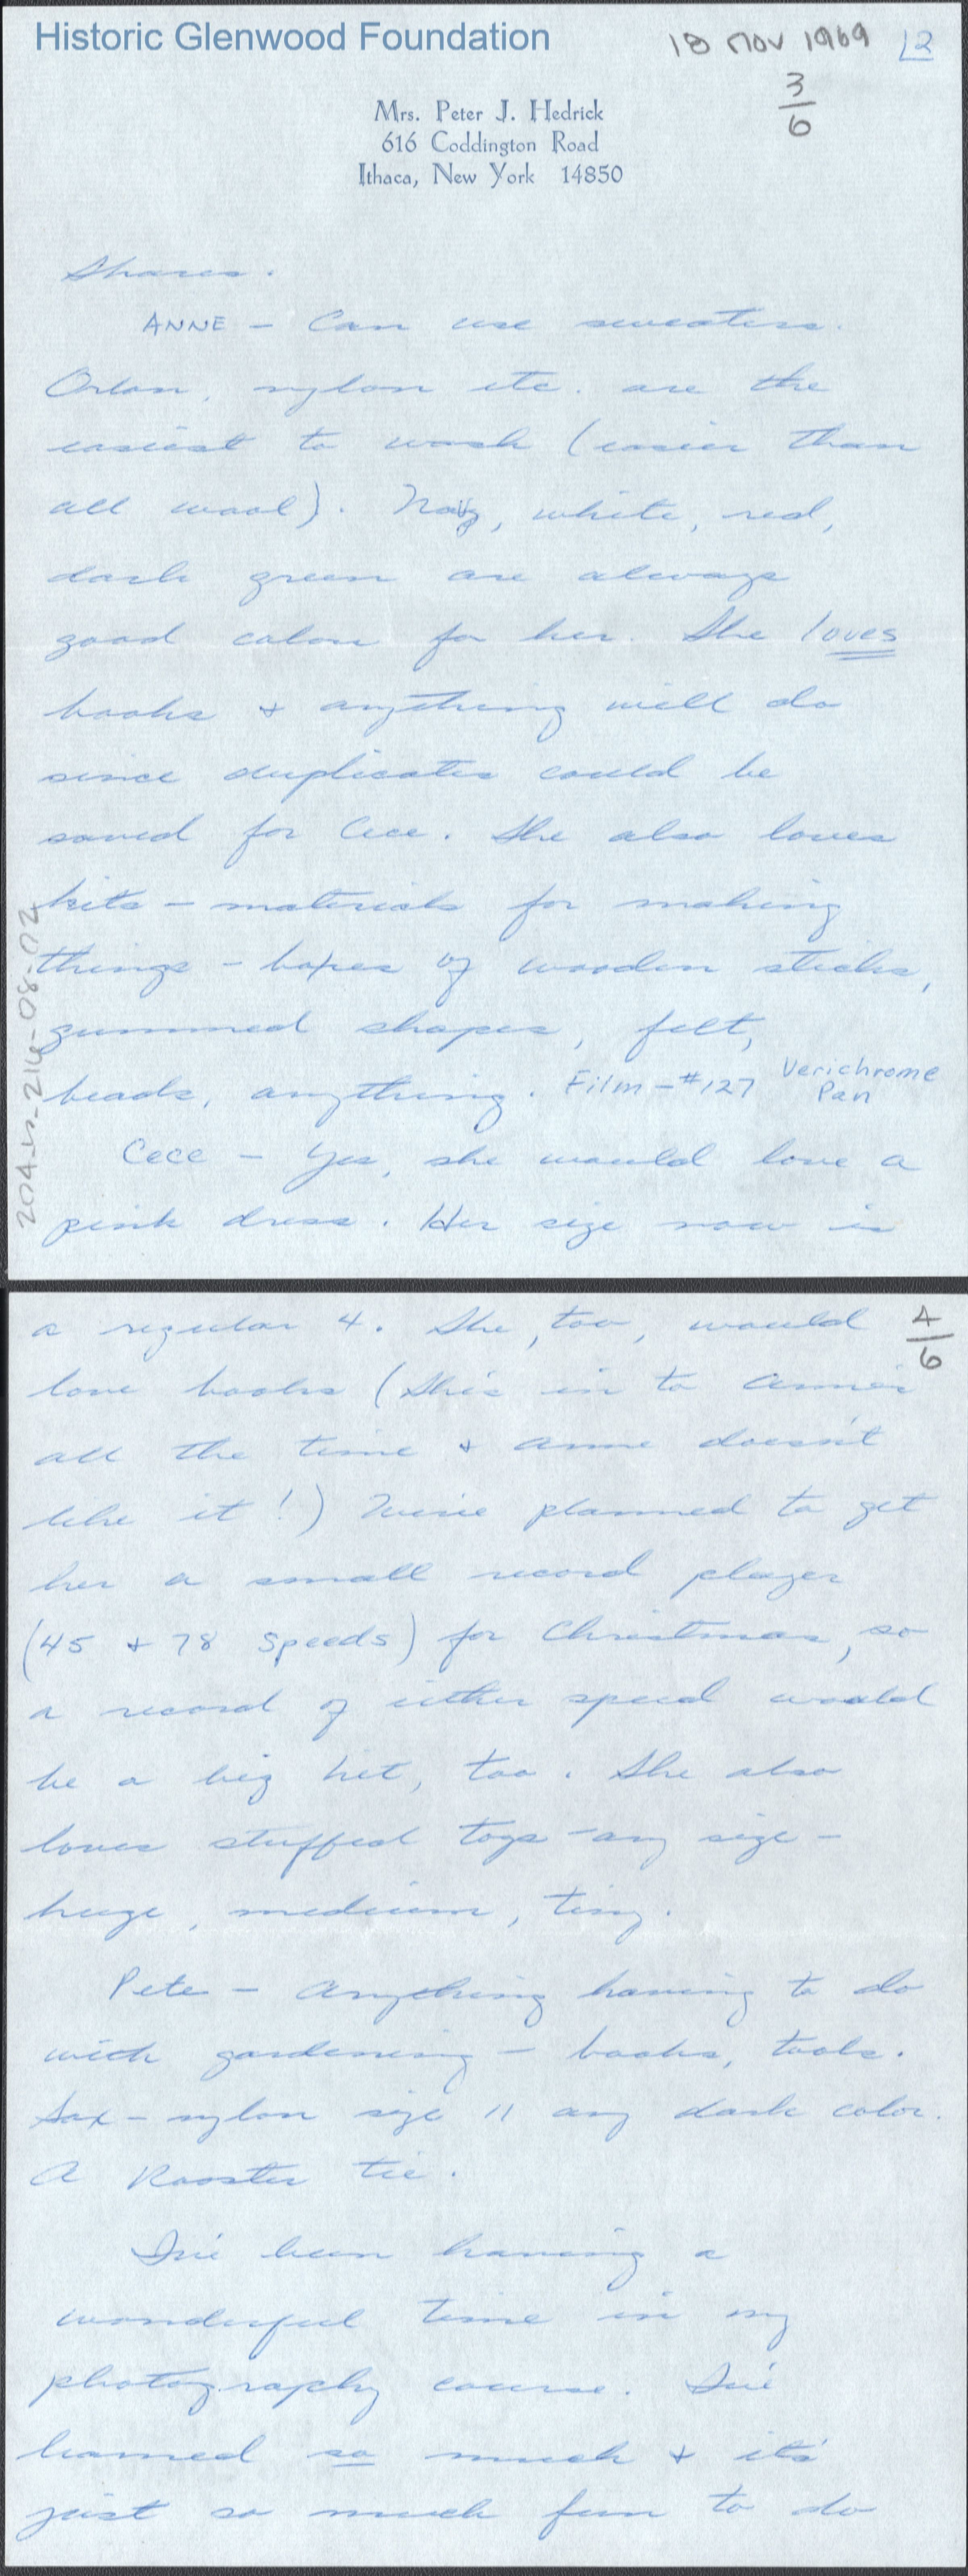 Historic Glenwood Foundation
18 NOV 1969 L2
3/6
Mrs. Peter J. Hedrick
616 Coddington Road
Ithaca, New York 14850
Shares.
ANNE - Can use sweaters.
Orlon, nylon etc. are the
easiest to wash (easier than
all wool). Navy, white, red,
dark green are always
good colors for her. She loves
books + anything will do
since duplicates could be
saved for Cece. She also loves
kits - materials for making
things - boxes of wooden sticks,
gummed shapes, felt,
beads, anything. Film - #127 Verichrome
Pan
Cece - Yes, she would love a
pink dress. Her size now is
204.n-216-08-02
a regular 4. She, too, would
4/6
love books (She's in to Anne's
all the time + Anne doesn't
like it!) We've planned to get
her a small record player
(45 + 78 speeds) for Christmas, so
a record of either speed would
be a big hit, too. She also
loves stuffed toys - any size -
huge, medium, tiny.
Pete - Anything having to do
with gardening - books, tools.
Sox - nylon size 11 any dark color.
A Rooster tie.
I've been having a
wonderful time in my
photography course. I've
learned so much + it's
just so much fun to do